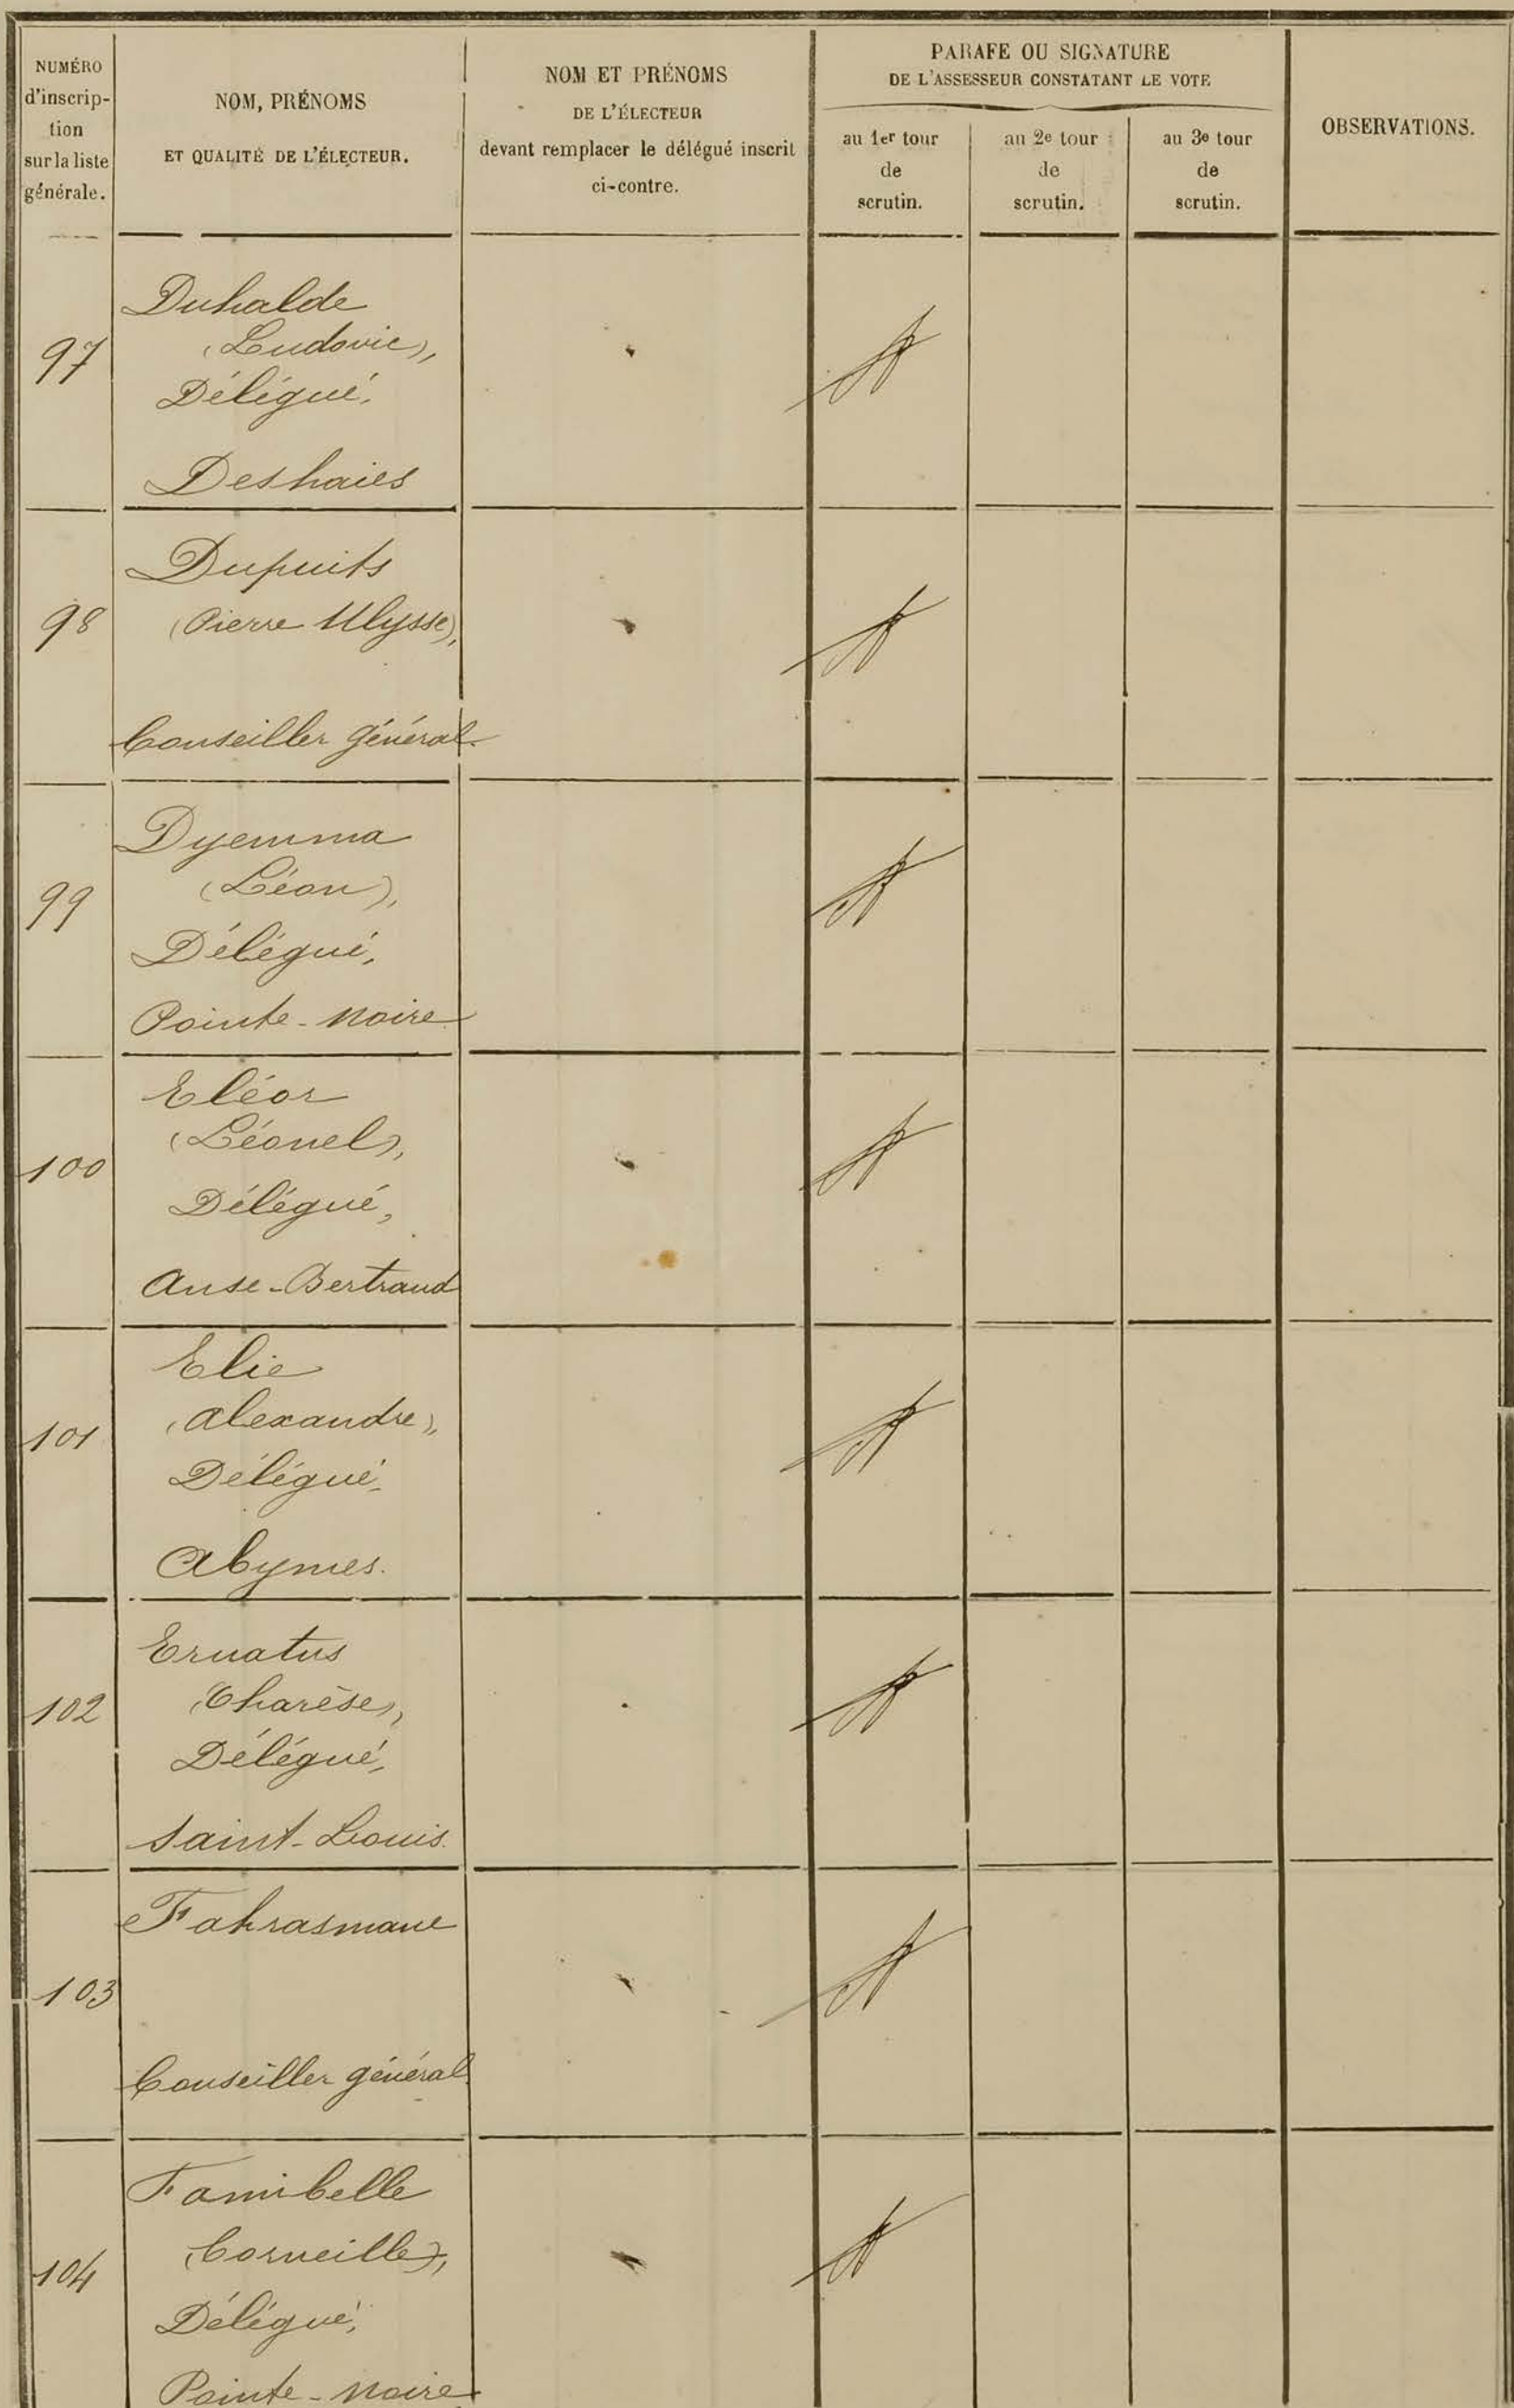 NUMÉRO
d'inscrip-
tion
sur la liste
générale.
NOM, PRÉNOMS
ET QUALITÉ DE L'ÉLECTEUR.
NOM ET PRÉNOMS
DE L'ÉLECTEUR
devant remplacer le délégué inscrit
ci-contre.
PARAFE OU SIGNATURE
DE L'ASSESSEUR CONSTATANT LE VOTE
au 1er tour
de
scrutin.
au 2e tour
de
scrutin.
au 3e tour
de
scrutin.
OBSERVATIONS.
97
Duhalde
(Ludovic),
Délégué,
Deshaies
98
Dupuits
(Pierre Ulysse),
Conseiller général.
99
Dyemma
(Léon),
Délégué,
Pointe-Noire
100
Eléor
(Léonel),
Délégué,
Anse-Bertrand
101
Elie
(Alexandre),
Délégué,
Abymes.
102
Ernatus
(Charèse),
Délégué,
Saint-Louis.
103
Fahrasmane
Conseiller général.
104
Famibelle
(Corneille),
Délégué,
Pointe-Noire